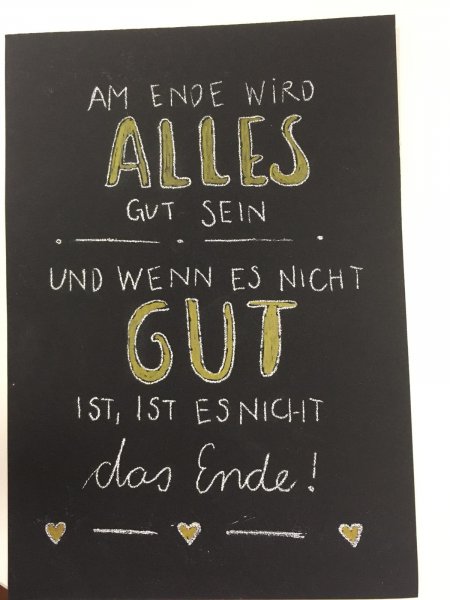 AM ENDE WiRD
ALLES
GUT SEIN
UND WENN ES NICHT
GUT
IST, IST ES NICHT
das Ende!